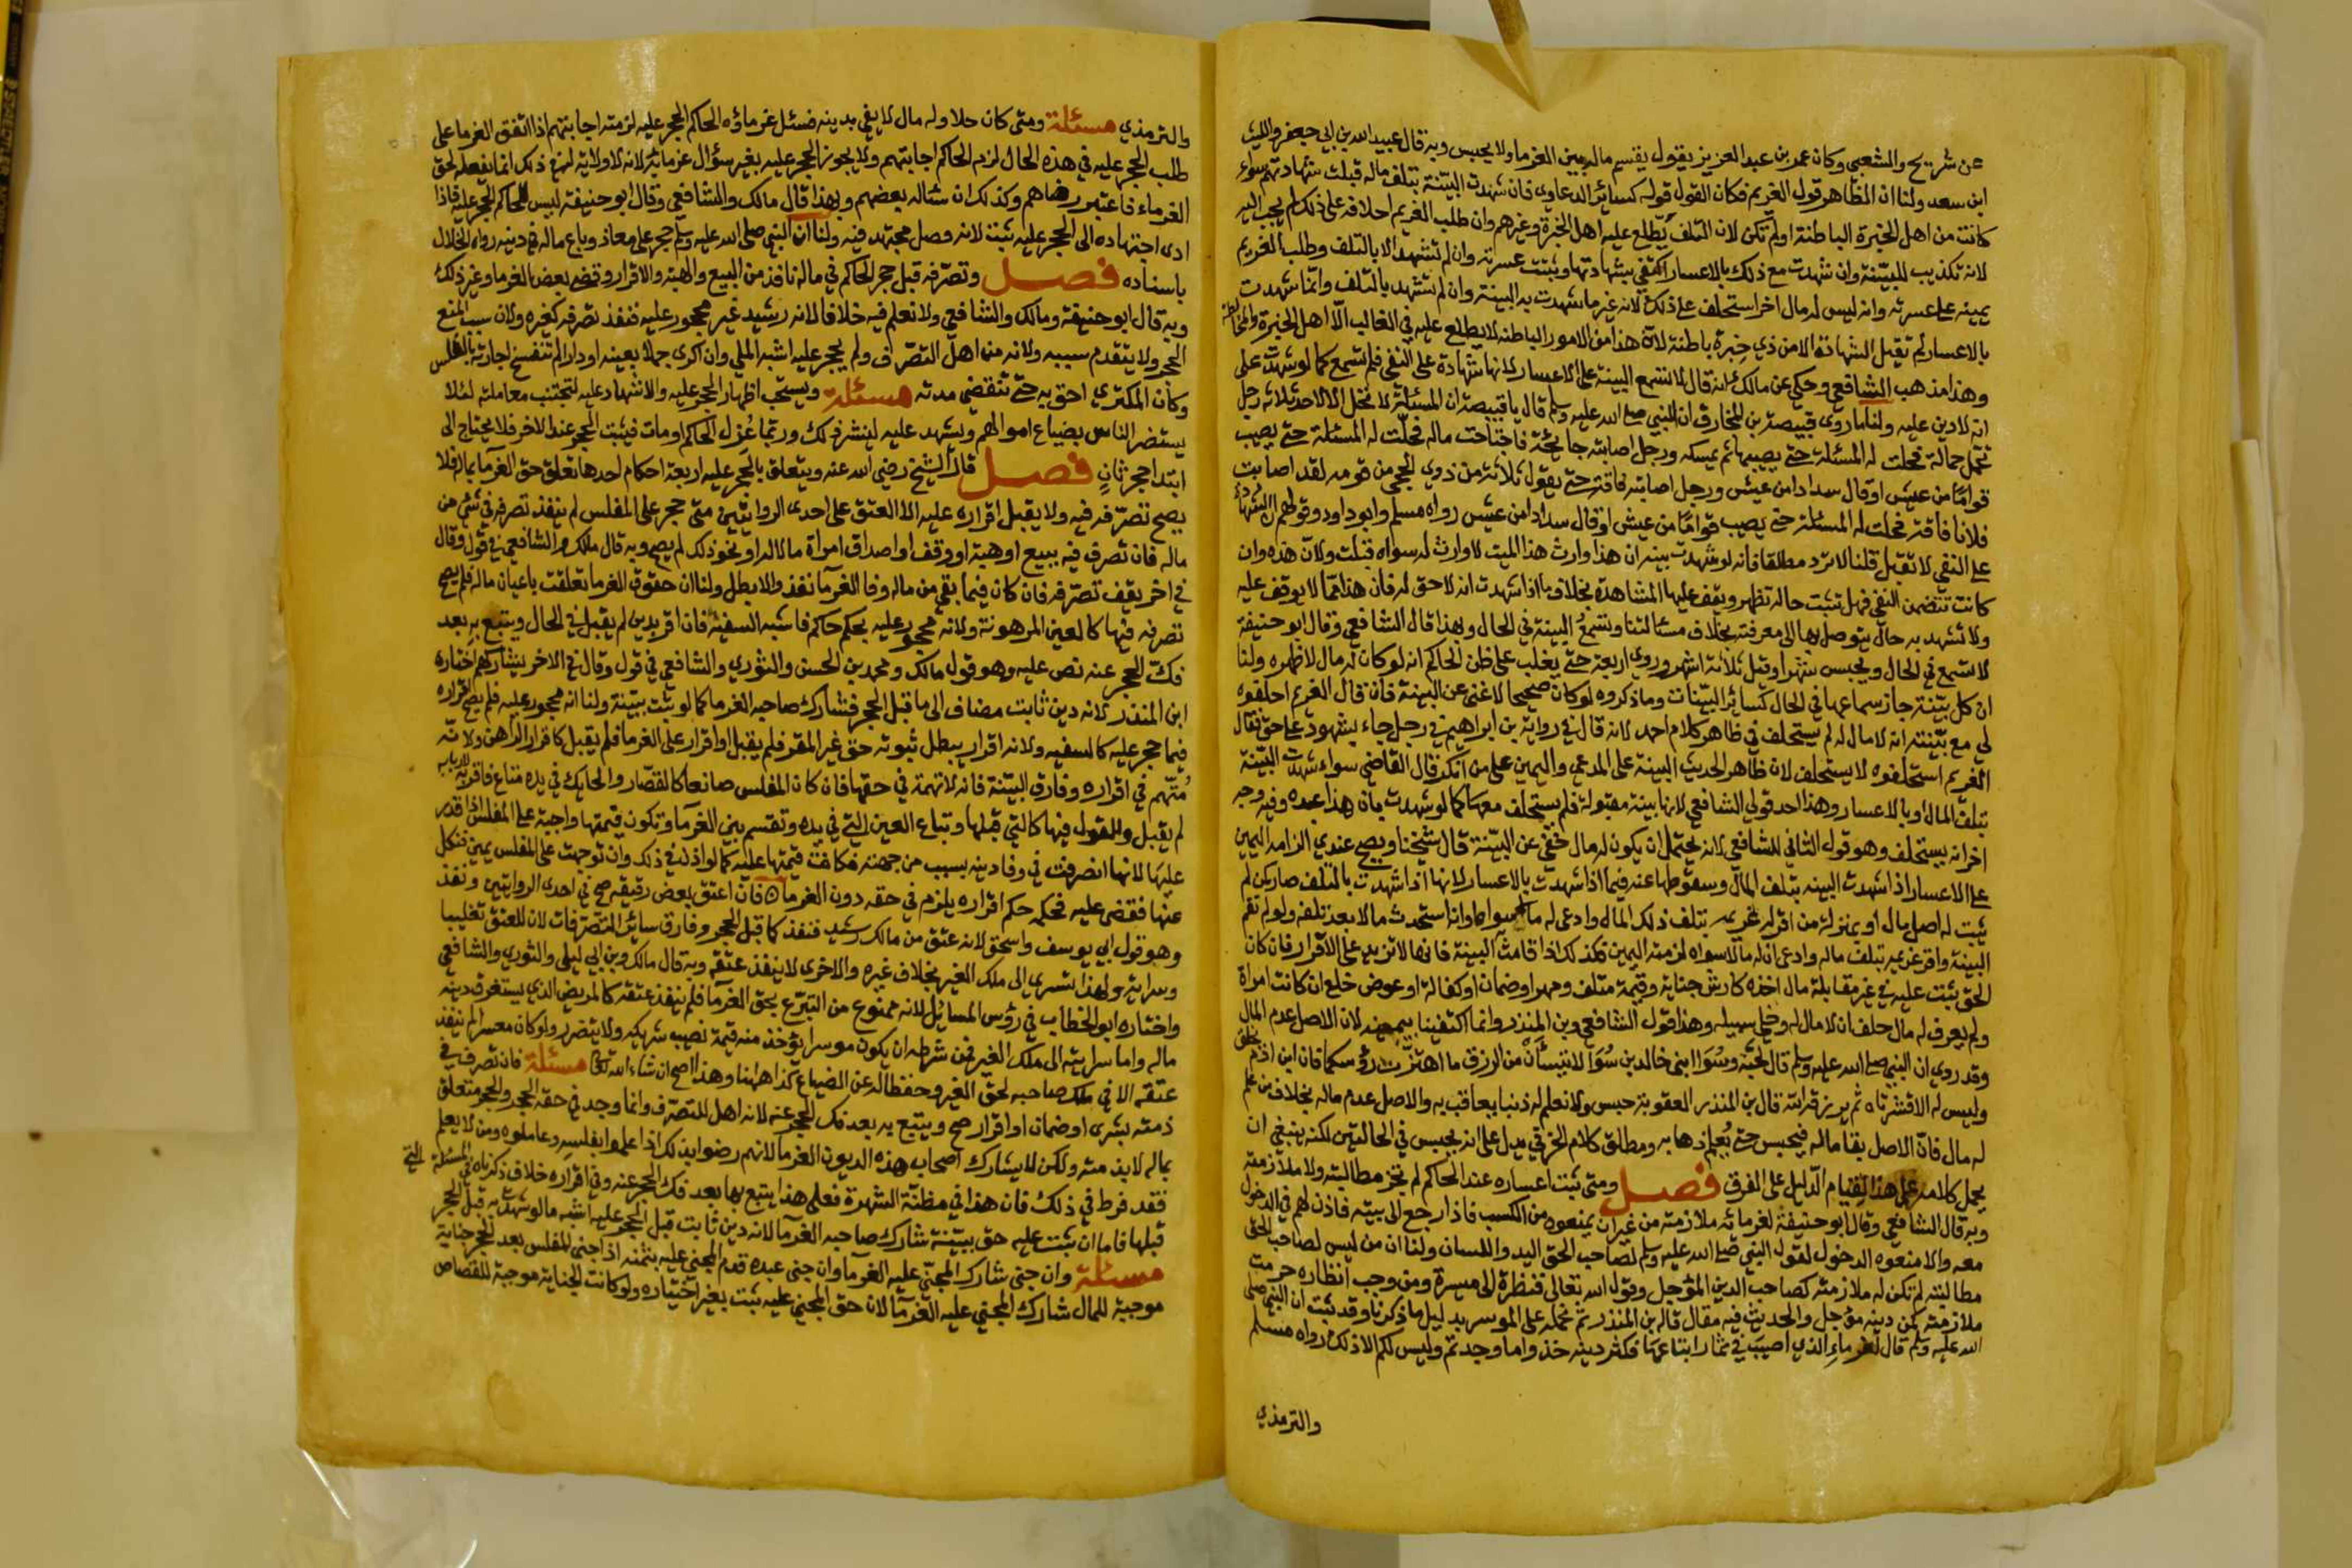 عن شريح والشعبي وكان عمر بن عبد العزيز يقول يقسم ماله بين الغرما ولا يحبس وبه قال عبيد الله بن ابي جعفر والليث
ابن سعد ولنا ان الظاهر قول الغريم فكان القول قوله كسائر الدعاوي فان شهدت البينة بتلف ماله قبلت شهادتهم سواء
كانت من اهل الخبرة الباطنة اولم تكن لان التلف يطلع عليه اهل الخبرة وغيرهم وان طلب الغريم احلافه على ذلك لم يجب اليه
لانه تكذيب للبينة وان شهدت مع ذلك بالاعسار اكتفي بشهادتها وثبتت عسرته وان لم تشهد الا بالتلف وطلب الغريم
يمينه على عسرته وانه ليس له مال اخر استحلف على ذلك لانه غير ما شهدت به البينة وان لم تشهد بالتلف وانما شهدت
بالاعسار لم تقبل الشهادة الا من ذي خبرة باطنة لان هذا من الامور الباطنة لا يطلع عليه في الغالب الا اهل الخبرة والمخالطة
وهذا مذهب الشافعي وحكي عن مالك انه قال لا تسمع البينة على الاعسار لانها شهادة على النفي فلم تسمع كما لو شهدت على
انه لا دين عليه ولنا ما روى قبيصة بن المخارق ان النبي صلى الله عليه وسلم قال يا قبيصة ان المسئلة لا تحل الا لاحد ثلاثة رجل
تحمل حمالة فحلت له المسئلة حتى يصيبها ثم يمسك ورجل اصابته جائحة فاجتاحت ماله فحلت له المسئلة حتى يصيب
قواما من عيش او قال سدادا من عيش ورجل اصابته فاقة حتى يقول ثلاثة من ذوي الحجى من قومه لقد اصابت
فلانا فاقة فحلت له المسئلة حتى يصيب قواما من عيش او قال سدادا من عيش رواه مسلم وابو داود وقولهم ان الشهادة
على النفي لا تقبل قلنا لا ترد مطلقا فانه لو شهدت بينة ان هذا وارث هذا الميت لا وارث له سواه قبلت ولان هذه وان
كانت تتضمن النفي فهي تثبت حالة تظهر ويقف عليها المشاهدة بخلاف ما اذا شهدت انه لا حق له فان هذا مما لا يوقف عليه
ولا تشهد به حال يتوصل بها الى معرفته بخلاف مسئلتنا وتسمع البينة في الحال وبهذا قال الشافعي وقال ابو حنيفة
لا تسمع في الحال ويحبس شهرا وقيل ثلاثة اشهر وروي اربعة حتى يغلب على ظن الحاكم انه لو كان له مال لاظهره ولنا
ان كل بينة جاز سماعها في الحال كسائر البينات وما ذكروه لو كان صحيحا لاغنى عن البينة فان قال الغريم احلفوه
لي مع بينته انه لا مال له لم يستحلف في ظاهر كلام احمد لانه قال في رواية بن ابراهيم في رجل جاء بشهود على حق فقال
الغريم استحلفوه لا يستحلف لان ظاهر الحديث البينة على المدعي واليمين على من انكر قال القاضي سواء شهدت البينة
بتلف المال او بالاعسار وهذا احد قولي الشافعي لانها بينة مقبولة فلم يستحلف معها كما لو شهدت بان هذا عبده وفيه وجه
اخر انه يستحلف وهو قول الثاني للشافعي لانه يحتمل ان يكون له مال خفي عن البينة قال شيخنا ويصح عندي الزامه اليمين
على الاعسار اذا شهدت البينة بتلف المال وسقوطها عنه فيما اذا شهدت بالاعسار لانها اذا شهدت بالتلف صار كمن لم
يثبت له اصل مال او بمنزلة من اقر له غريمه بتلف ذلك المال وادعى له مالا سواه او انه استحدث مالا بعد تلفه ولو لم تقم
البينة واقر غريمه بتلف ماله وادعى ان له مالا سواه لزمته اليمين فكذلك اذا قامت البينة فانها لا تزيد على الاقرار فان كان
الحق يثبت عليه في غير مقابلة مال اخذه كارش جناية وقيمة متلف ومهر او ضمان او كفالة او عوض خلع ان كانت امراة
ولم يعرف له مال حلف ان لا مال له وخلي سبيله وهذا قول الشافعي وبن المنذر وانما اكتفينا بيمينه لان الاصل عدم المال
وقد روي ان النبي صلى الله عليه وسلم قال لحبة وسوا ابني خالد بن سوا لا تيئسا من الرزق ما اهتزت رؤسكما فان ابن ادم يخلق
وليس له الا قشرتاه ثم يرزقه الله قال بن المنذر العقوبة حبس ولا نعلم له ذنبا يعاقب به والاصل عدم ماله بخلاف من علم
له مال فان الاصل بقا ماله فيحبس حتى يعلم ذهابه ومطلق كلام الخرقي يدل على انه يحبس في الحالتين لكنه ينبغي ان
يحمل كلامه على هذا لقيام الدليل على الفرق فصل ومتى ثبت اعساره عند الحاكم لم تجز مطالبته ولا ملازمته
وبه قال الشافعي وقال ابو حنيفة لغرمائه ملازمته من غير ان يمنعوه من الكسب فاذا رجع الى بيته فاذن لهم في الدخول
معه والا منعوه الدخول لقول النبي صلى الله عليه وسلم لصاحب الحق اليد واللسان ولنا ان من ليس لصاحب الحق
مطالبته لم تكن له ملازمته كصاحب الدين المؤجل وقول الله تعالى فنظرة الى ميسرة ومن وجب انظاره حرمت
ملازمته كمن دينه مؤجل والحديث فيه مقال قاله بن المنذر ثم نحمله على الموسر بدليل ما ذكرنا وقد ثبت ان النبي صلى
الله عليه وسلم قال لغرماء الذي اصيب في ثمار ابتاعها فكثر دينه خذوا ما وجدتم وليس لكم الا ذلك رواه مسلم
والترمذي
والترمذي مسئلة ومتى كان حلا وله مال لا يفي بدينه فسئل غرماؤه الحاكم الحجر عليه لزمته اجابتهم اذا اتفق الغرما على
طلب الحجر عليه في هذه الحال لزم الحاكم اجابتهم ولا يجوز الحجر عليه بغير سؤال غرمائه لانه لا ولاية له في ذلك انما يفعله لحق
الغرماء فاعتبر رضاهم وكذلك ان ساله بعضهم وبهذا قال مالك والشافعي وقال ابو حنيفة ليس للحاكم الحجر عليه فاذا
ادى اجتهاده الى الحجر عليه ثبت لانه فصل مجتهد فيه ولنا ان النبي صلى الله عليه وسلم حجر على معاذ وباع ماله في دينه رواه الخلال
باسناده فصل وتصرفه قبل حجر الحاكم في ماله نافذ من البيع والهبة والاقرار وقضى بعض الغرما وغير ذلك
وبه قال ابو حنيفة ومالك والشافعي ولا نعلم فيه خلافا لانه رشيد غير محجور عليه فنفذ تصرفه كغيره ولان سبب المنع
الحجر ولا يتقدم سببه ولانه من اهل التصرف ولم يحجر عليه اشبه الملي وان اكرى جملا بعينه او دارا لم تنفسخ اجارته بالفلس
وكان المكتري احق به حتى تنقضي مدته مسئلة ويستحب اظهار الحجر عليه والاشهاد عليه لتجتنب معاملته لئلا
يستضر الناس بضياع اموالهم ويشهد عليه لينشر ذلك وربما عزل الحاكم او مات فيثبت الحجر عند الاخر فلا يحتاج الى
ابتدا حجر ثان فصل قال الشيخ رضي الله عنه ويتعلق بالحجر عليه اربعة احكام احدها تعلق حق الغرما بماله فلا
يصح تصرفه فيه ولا يقبل اقراره عليه الا العتق على احدى الروايتين متى حجر على المفلس لم ينفذ تصرفه في شي من
ماله فان تصرف فيه ببيع او هبة او وقف او اصداق امراة مالا له او نحو ذلك لم يصح وبه قال ملك والشافعي في قول وقال
في اخر يقف تصرفه فان كان فيما بقي من ماله وفا الغرما نفذ والا بطل ولنا ان حقوق الغرما تعلقت باعيان ماله فلم يصح
تصرفه فيها كالعين المرهونة ولانه محجور عليه بحكم حاكم فاشبه السفيه فان اقر بدين لم يقبل في الحال ويتبع به بعد
فك الحجر عنه نص عليه وهو قول مالك ومحمد بن الحسن والثوري والشافعي في قول وقال في الاخر يشاركهم اختاره
ابن المنذر لانه دين ثابت مضاف الى ما قبل الحجر فشارك صاحبه الغرما كما لو ثبت ببينة ولنا انه محجور عليه فلم يصح اقراره
فيما حجر عليه كالسفيه ولانه اقرار يبطل ثبوته حق غير المقر فلم يقبل او اقرار على الغرما فلم يقبل كاقرار الراهن ولانه
متهم في اقراره وفارق البينة فانه لا تهمة في حقها فان كان المفلس صانعا كالقصار والحايك في يده متاع فاقر به لاربابه
لم يقبل والقول فيها كالتي قبلها وتباع العين التي في يده وتقسم بين الغرما وتكون قيمتها واجبة على المفلس اذا قدر
عليها لانها انصرفت في وفا دينه بسبب من جهته فكانت قيمتها عليه كما لو اذن في ذلك وان توجهت على المفلس يمين فنكل
عنها فقضي عليه فحكمه حكم اقراره يلزم في حقه دون الغرما فان اعتق بعض رقيقه صح في احدى الروايتين ونفذ
وهو قول ابي يوسف واسحق لانه عتق من مالك رشيد فنفذ كما قبل الحجر وفارق سائر التصرفات لان للعتق تغليبا
وسراية ولهذا تسري الى ملك الغير بخلاف غيره والاخرى لا ينفذ عتقه وبه قال مالك وبن ابي ليلى والثوري والشافعي
واختاره ابو الخطاب في رؤس المسائل لانه ممنوع من التبرع بحق الغرما فلم ينفذ عتقه كالمريض الذي يستغرق دينه
ماله واما سرايته الى ملك الغير فمن شرطه ان يكون موسرا يؤخذ منه قيمة نصيب شريكه ولا يتضرر ولو كان معسرا لم ينفذ
عتقه الا في ملكه صاحبه لحق الغير وحفظا له عن الضياع كذا ههنا وهذا اصح ان شاء الله تعالى مسئلة فان تصرف في
ذمته بشرى او ضمان او اقرار صح ويتبع به بعد فك الحجر عنه لانه اهل للتصرف وانما وجد في حقه الحجر والحجر متعلق
بماله لا بذمته ولكن لا يشارك اصحاب هذه الديون الغرما لانهم رضوا بذلك اذا علموا بفلسه وعاملوه ومن لا يعلم
فقد فرط في ذلك فان هذا في مظنة الشهرة فعلى هذا يتبع بها بعد فك الحجر عنه وفي اقراره خلاف ذكرناه في المسئلة التي
قبلها فاما ان ثبت عليه حق ببينة شارك صاحبه الغرما لانه دين ثابت قبل الحجر عليه اشبه مالو شهدت به قبل الحجر
مسئلة وان جنى شارك المجني عليه الغرما وان جنى عبده قدم المجني عليه بثمنه اذا جنى المفلس بعد الحجر جناية
موجبة للمال شارك المجني عليه الغرما لان حق المجني عليه ثبت بغير اختياره ولو كانت الجناية موجبة للقصاص